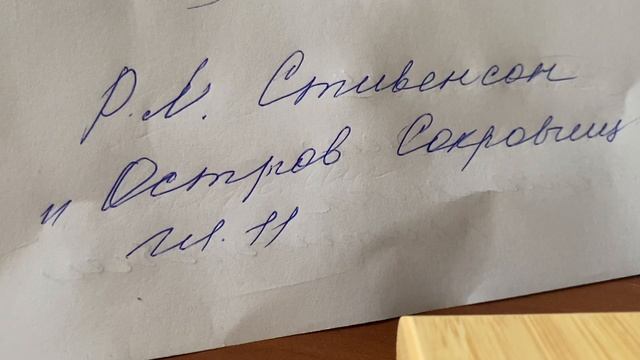 Р. Л. Стивенсон
„ Остров Сокровищ
гл. 11